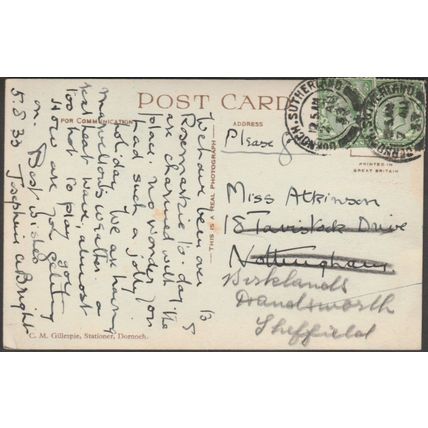 POST CARD
FOR COMMUNICATION
ADDRESS
We have been over to
Rosemarkie to-day &
are charmed with the
place. no wonder you
had such a jolly
holiday. We are having
marvellous weather - a
real heat wave, almost
too hot to play golf
How are you getting
on. Best wishes
5.8.33 Josephine a Bright
THIS IS A REAL PHOTOGRAPH
DORNOCH, SUTHERLAND
DORNOCH, SUTHERLAND
PRINTED IN
GREAT BRITAIN
Please
Miss Atkinson
18 Tavistock Drive
Nottingham
Birklands
Handsworth
Sheffield
C. M. Gillespie, Stationer, Dornoch.